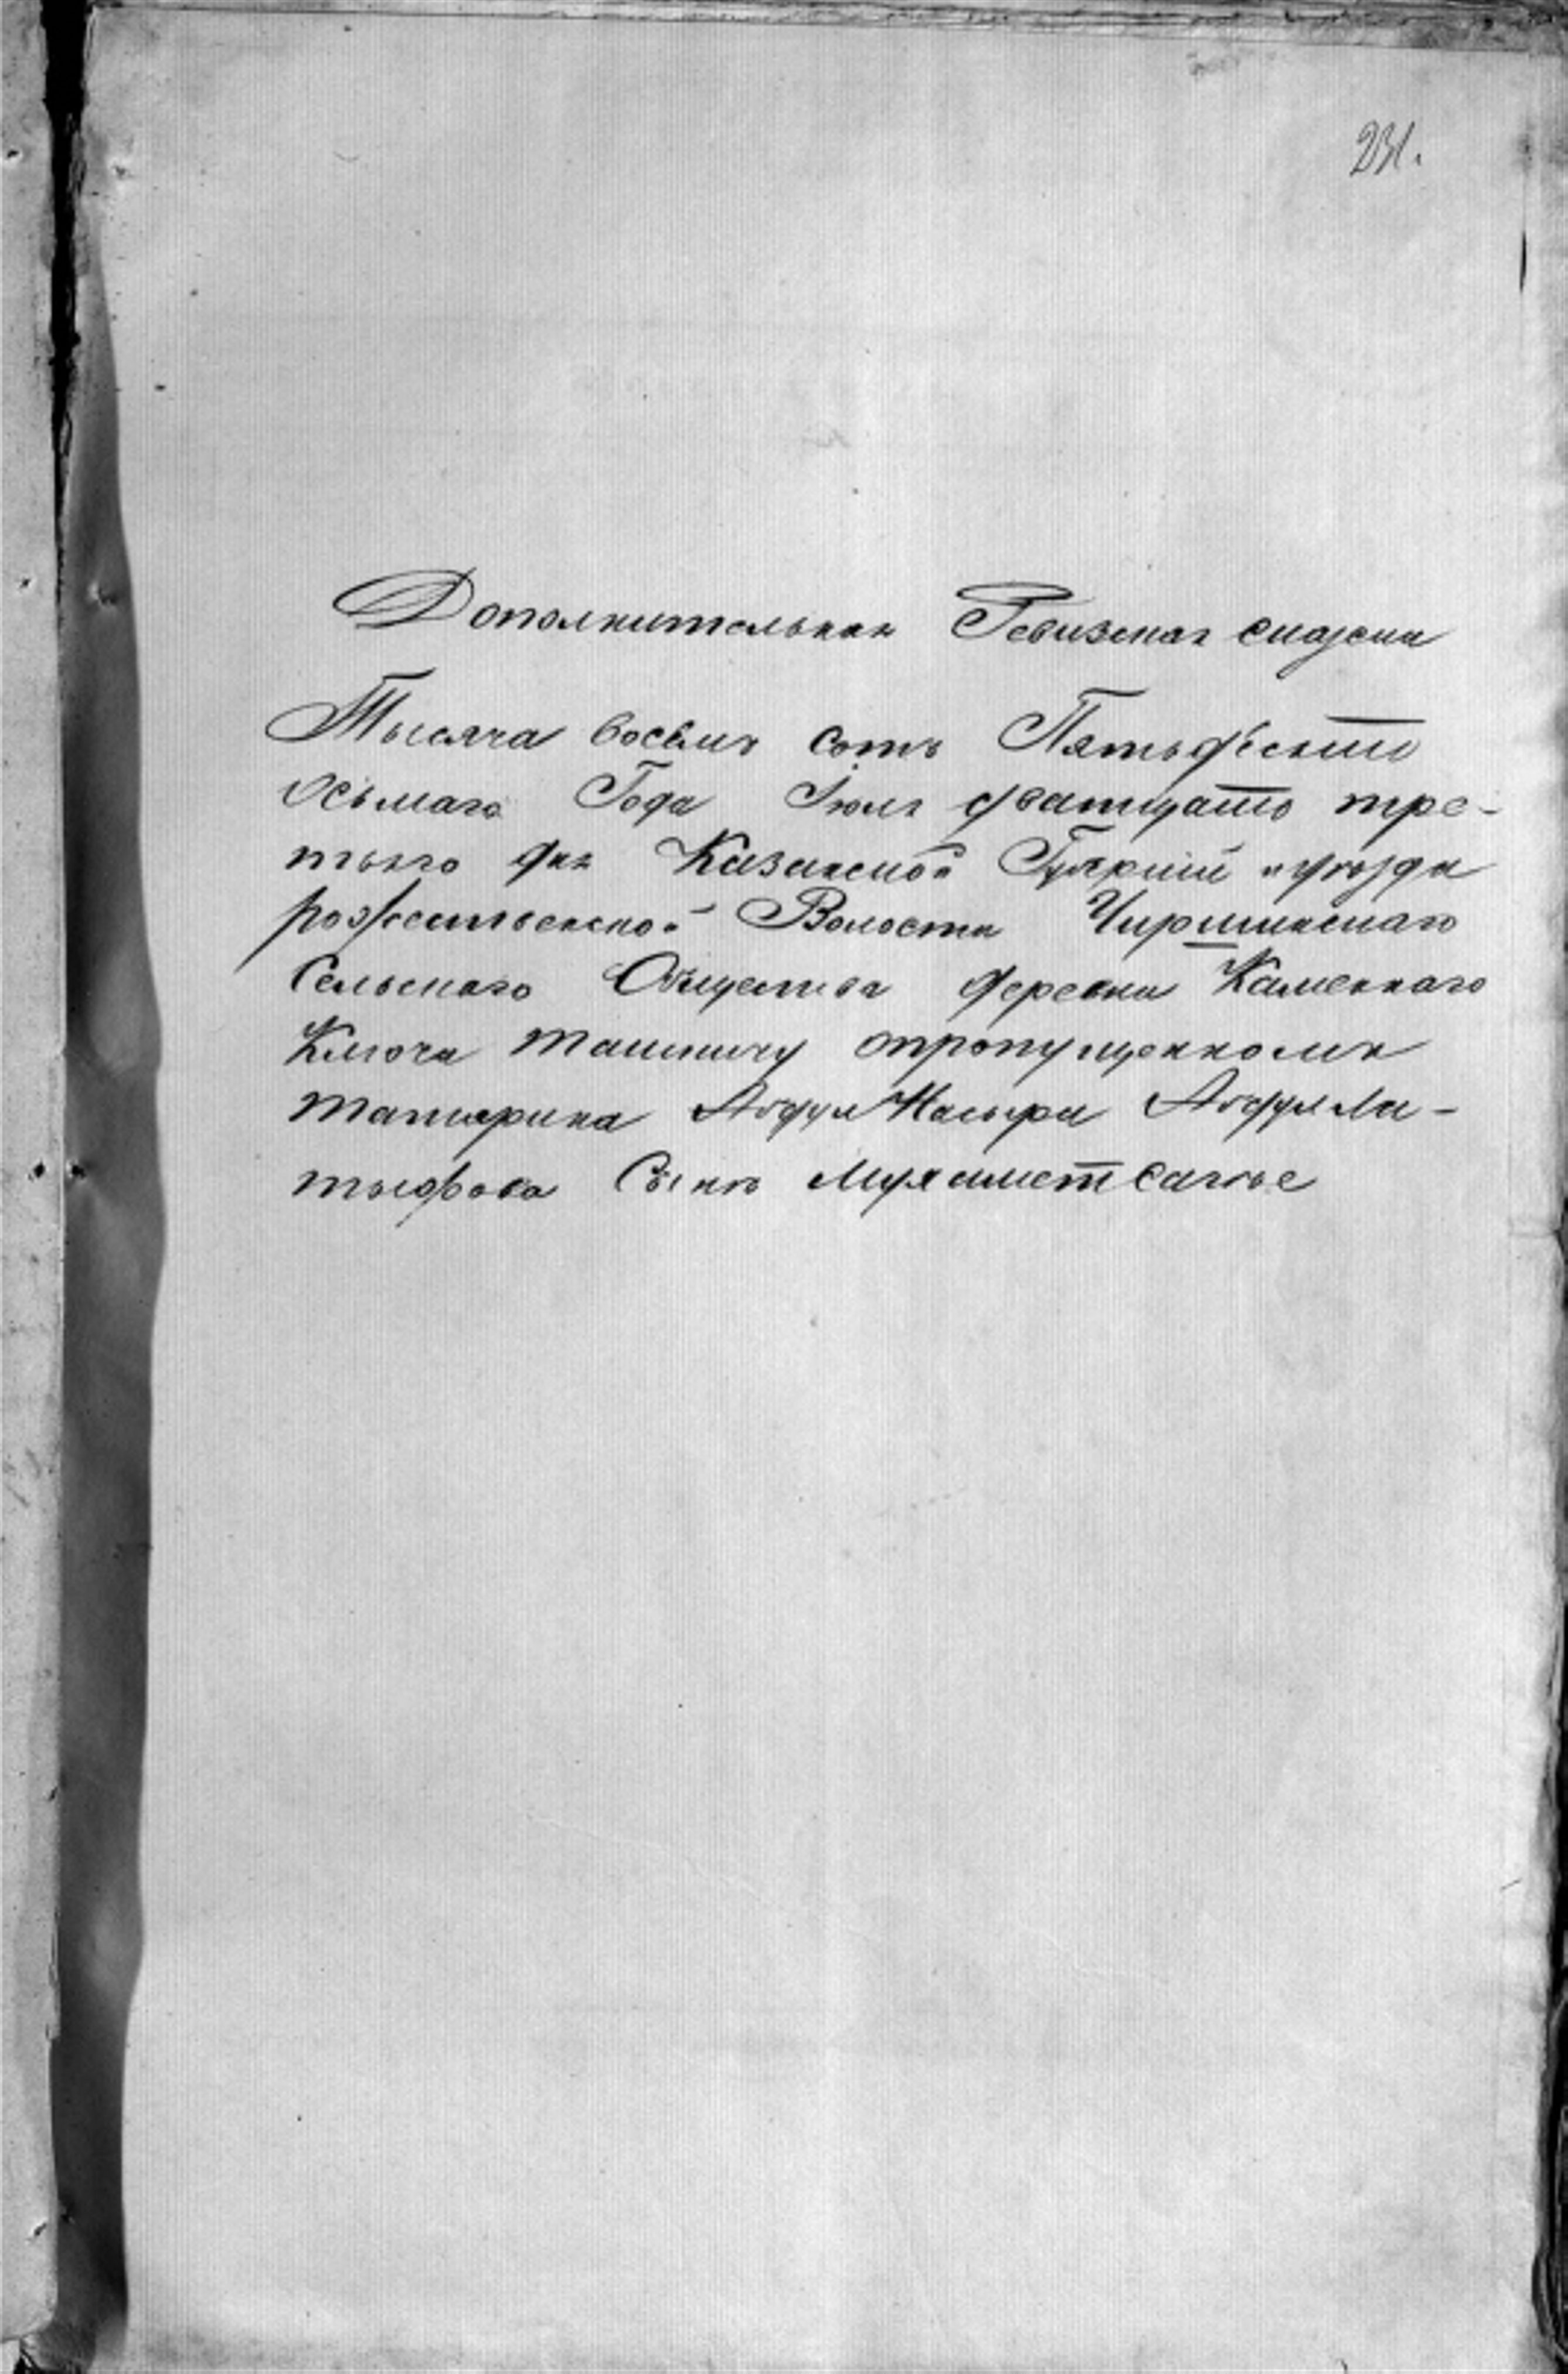 231.
Дополнительная Ревизская сказка
Тысяча восемь сотъ Пятьдесятъ
Осьмаго Года Іюля дватцать тре-
тьяго дня Казанской Губерніи и уѣзда
рождественской Волости Чирпинскаго
Сельскаго Общества деревни Каменнаго
Ключа Ташкичу опропущенномъ
татарина Абдул Насыра Абдулла-
тыфова Сынъ Мухаметсагѣе